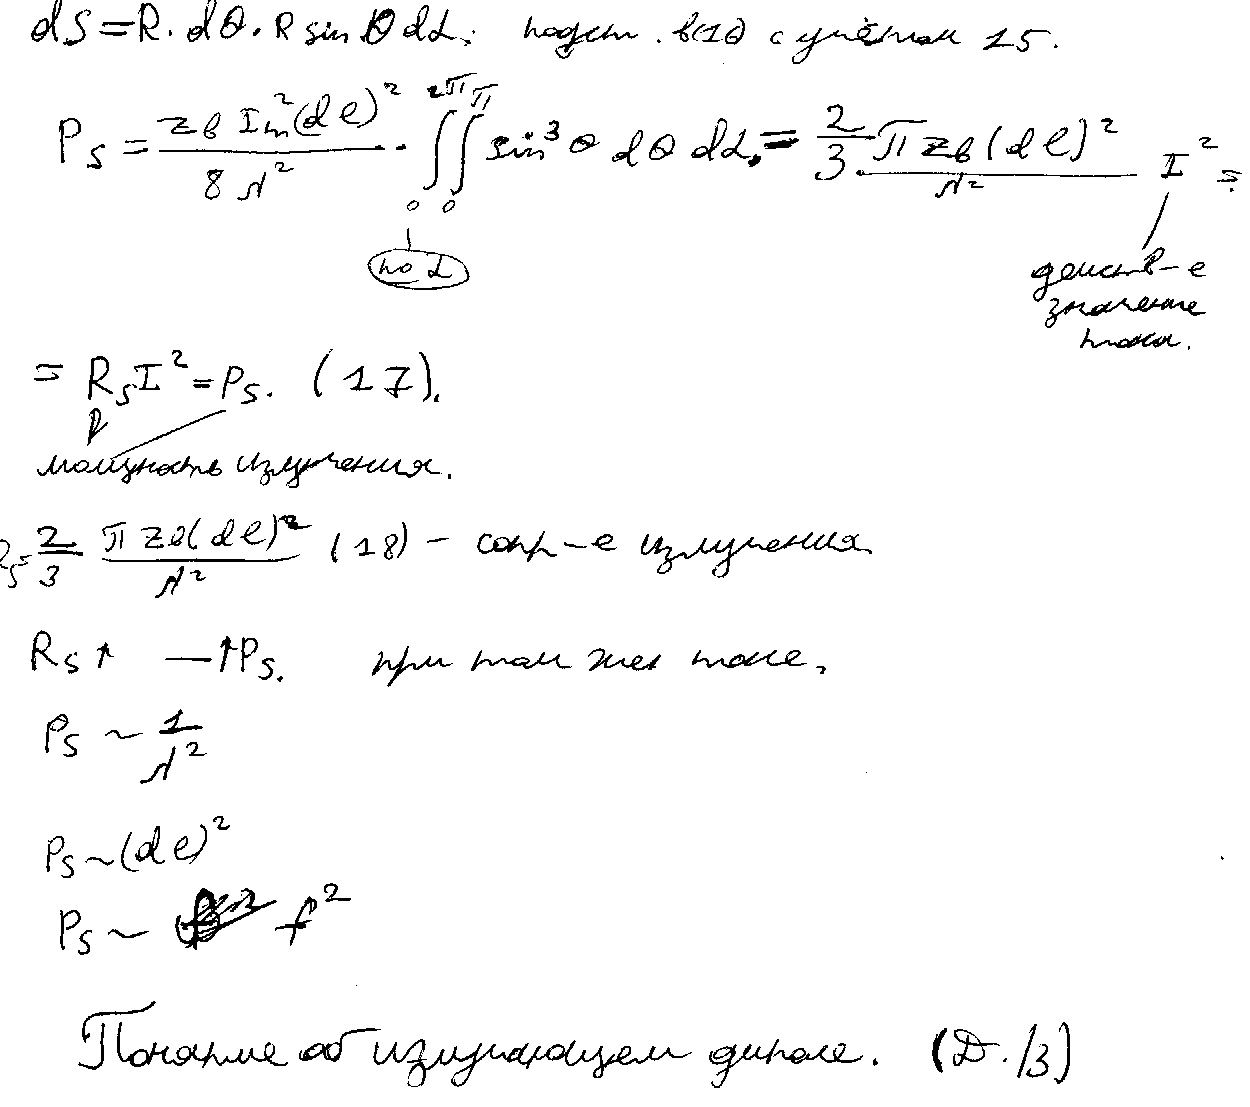 dS = R · dθ · R sin θ dα; подст. в(16) с учётом 15.
P_S = Z_в I_m²(dl)² / 8λ² · ∫₀^2π ∫₀^π sin³ θ dθ dα = 2/3 · π Z_в (dl)² / λ² I² =
по α
действ-е
значение
тока.
= R_S I² = P_S. (17).
мощность излучения.
R_S = 2/3 π Z_в (dl)² / λ² (18) – сопр-е излучения
R_S ↑ — ↑P_S. при том же токе.
P_S ~ 1/λ²
P_S ~ (dl)²
P_S ~ f²
Понятие об излучающем диполе. (Д./З)